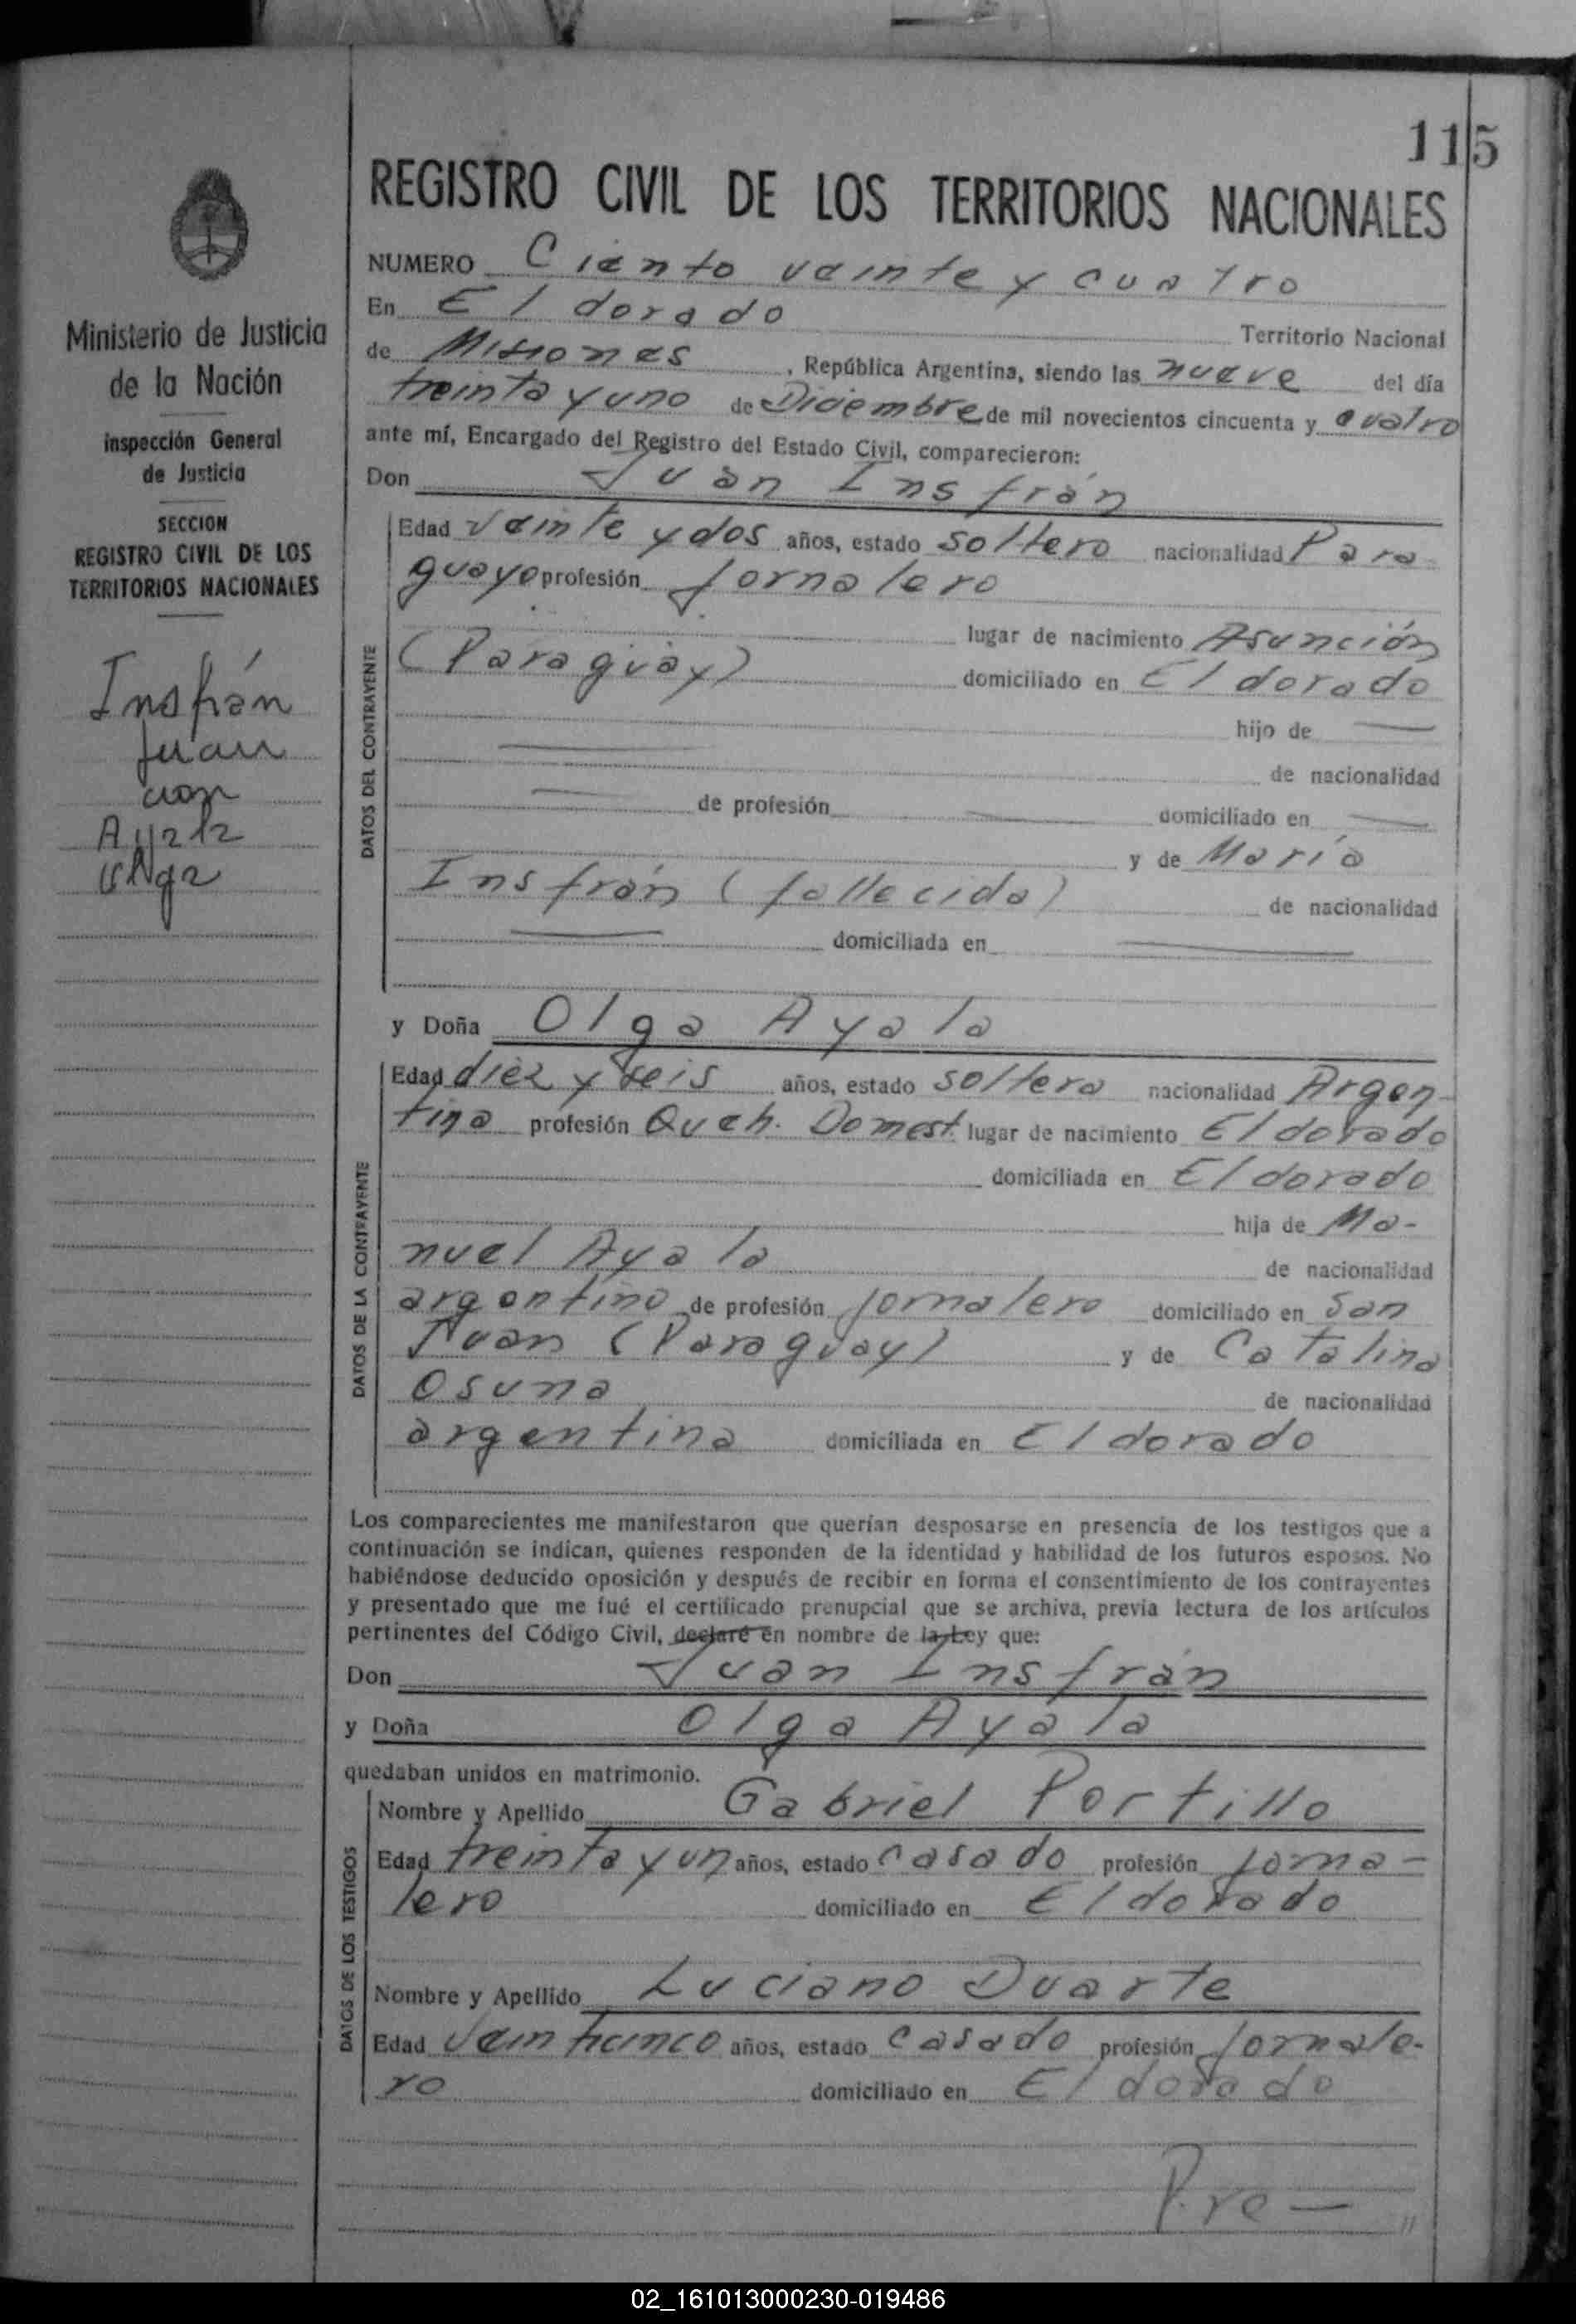 115
REGISTRO CIVIL DE LOS TERRITORIOS NACIONALES
Ministerio de Justicia
de la Nación
inspección General
de Justicia
SECCION
REGISTRO CIVIL DE LOS
TERRITORIOS NACIONALES
Insfrán
Juan
con
Ayala
Olga
NUMERO Ciento veinte y cuatro
En Eldorado Territorio Nacional
de Misiones, República Argentina, siendo las nueve del día
treinta y uno de Diciembre de mil novecientos cincuenta y cuatro
ante mí, Encargado del Registro del Estado Civil, comparecieron:
Don Juan Insfrán
DATOS DEL CONTRAYENTE
Edad veinte y dos años, estado soltero nacionalidad Para-
guayo profesión Jornalero
lugar de nacimiento Asunción
(Paraguay) domiciliado en Eldorado
hijo de —
— de nacionalidad
— de profesión — domiciliado en —
y de María
Insfrán (fallecida) de nacionalidad
— domiciliada en —
y Doña Olga Ayala
DATOS DE LA CONTRAYENTE
Edad diez y seis años, estado soltera nacionalidad Argen-
tina profesión Queh. Domest. lugar de nacimiento Eldorado
domiciliada en Eldorado
hija de Ma-
nuel Ayala de nacionalidad
argentino de profesión Jornalero domiciliado en San
Juan (Paraguay) y de Catalina
Osuna de nacionalidad
argentina domiciliada en Eldorado
Los comparecientes me manifestaron que querían desposarse en presencia de los testigos que a
continuación se indican, quienes responden de la identidad y habilidad de los futuros esposos. No
habiéndose deducido oposición y después de recibir en forma el consentimiento de los contrayentes
y presentado que me fué el certificado prenupcial que se archiva, previa lectura de los artículos
pertinentes del Código Civil, declaré en nombre de la Ley que:
Don Juan Insfrán
y Doña Olga Ayala
quedaban unidos en matrimonio.
DATOS DE LOS TESTIGOS
Nombre y Apellido Gabriel Portillo
Edad treinta y un años, estado casado profesión Jorna-
lero domiciliado en Eldorado
Nombre y Apellido Luciano Duarte
Edad veinticinco años, estado casado profesión Jornale-
ro domiciliado en Eldorado
Pre—
02_161013000230-019486